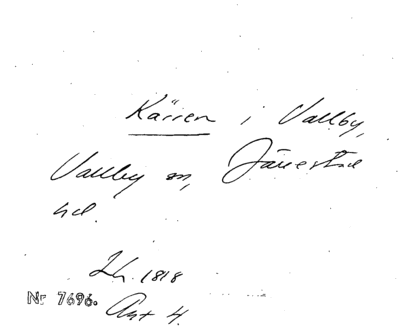 Kärren i Vallby,
Vallby sn, Järrestad
hd.
Lh. 1818
Nr 7696. Akt 4.